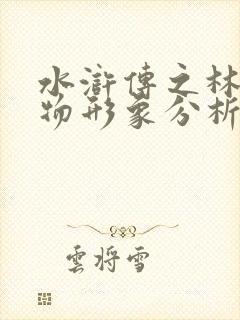 水滸傳之林
物形象分析
雲將雪